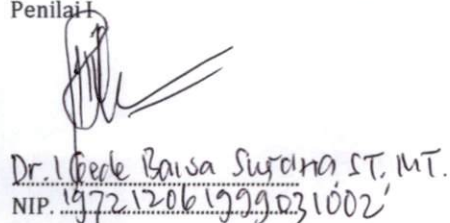 Penilai I
Dr. I Gede Baisa Surana, ST, MT.
NIP. 197212061999031002